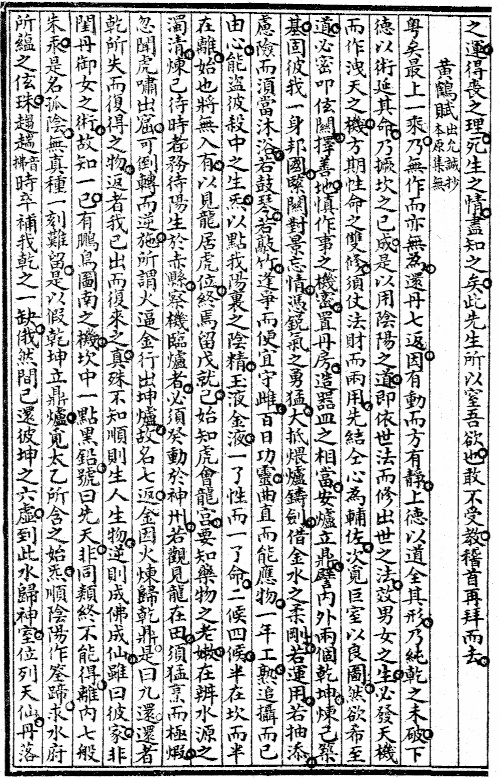 之運得喪之理死生之情盡知之矣此先生所以窒吾欲也敢不受教稽首再拜而去
黃鶴賦出允誠抄本原集無
粵矣最上一乘乃無作而亦無為還丹七返因有動而方有靜上德以道全其形乃純乾之未破下
德以術延其命乃撅坎之已成是以用陰陽之道即依世法而修出世之法效男女之生必發天機
而作洩天之機方期性命之雙修須仗法財而兩用先結仝心為輔佐次覓巨室以良圖然欲布至
道必密叩伭關擇善地慎作事之機密置丹房造器皿之相當安爐立鼎譬內外兩個乾坤煉己築
基固彼我一身邦國緊關對景忘情憑銳氣之勇猛大抵煨爐鑄劍借金水之柔剛若運用若抽添
慮險而須當沐浴若鼓琴若敲竹逢爭而便宜守雌百日功靈曲直而能應物一年工熟追攝而已
由心能盜彼殺中之生炁以點我陽裏之陰精玉液金液一了性而一了命二候四候半在坎而半
在離始也將無入有以見龍居虎位終焉留戊就己始知虎會龍宮要知藥物之老嫩在辨水源之
濁清煉己待時者務待陽生於赤縣察機臨爐者必須癸動於神州若觀見龍在田須猛烹而極煅
忽聞虎嘯出窟可倒轉而逆施所謂火逼金行出坤爐故名七返金因火煉歸乾鼎是曰九還還者
乾所失而復得之物返者我已出而復來之真殊不知順則生人生物逆則成佛成仙雖曰彼家非
閨丹御女之術故知一己有鵬鳥圖南之機坎中一點黑鉛號曰先天非同類終不能得離內七般
朱汞是名孤陰無真種一刻難留是以假乾坤立鼎爐覓太乙所含之始炁順陰陽作筌蹄求水府
所蘊之伭珠趯趯音拂時卒補我乾之一缺俄然間已還彼坤之六虛到此水歸神室位列天仙丹落